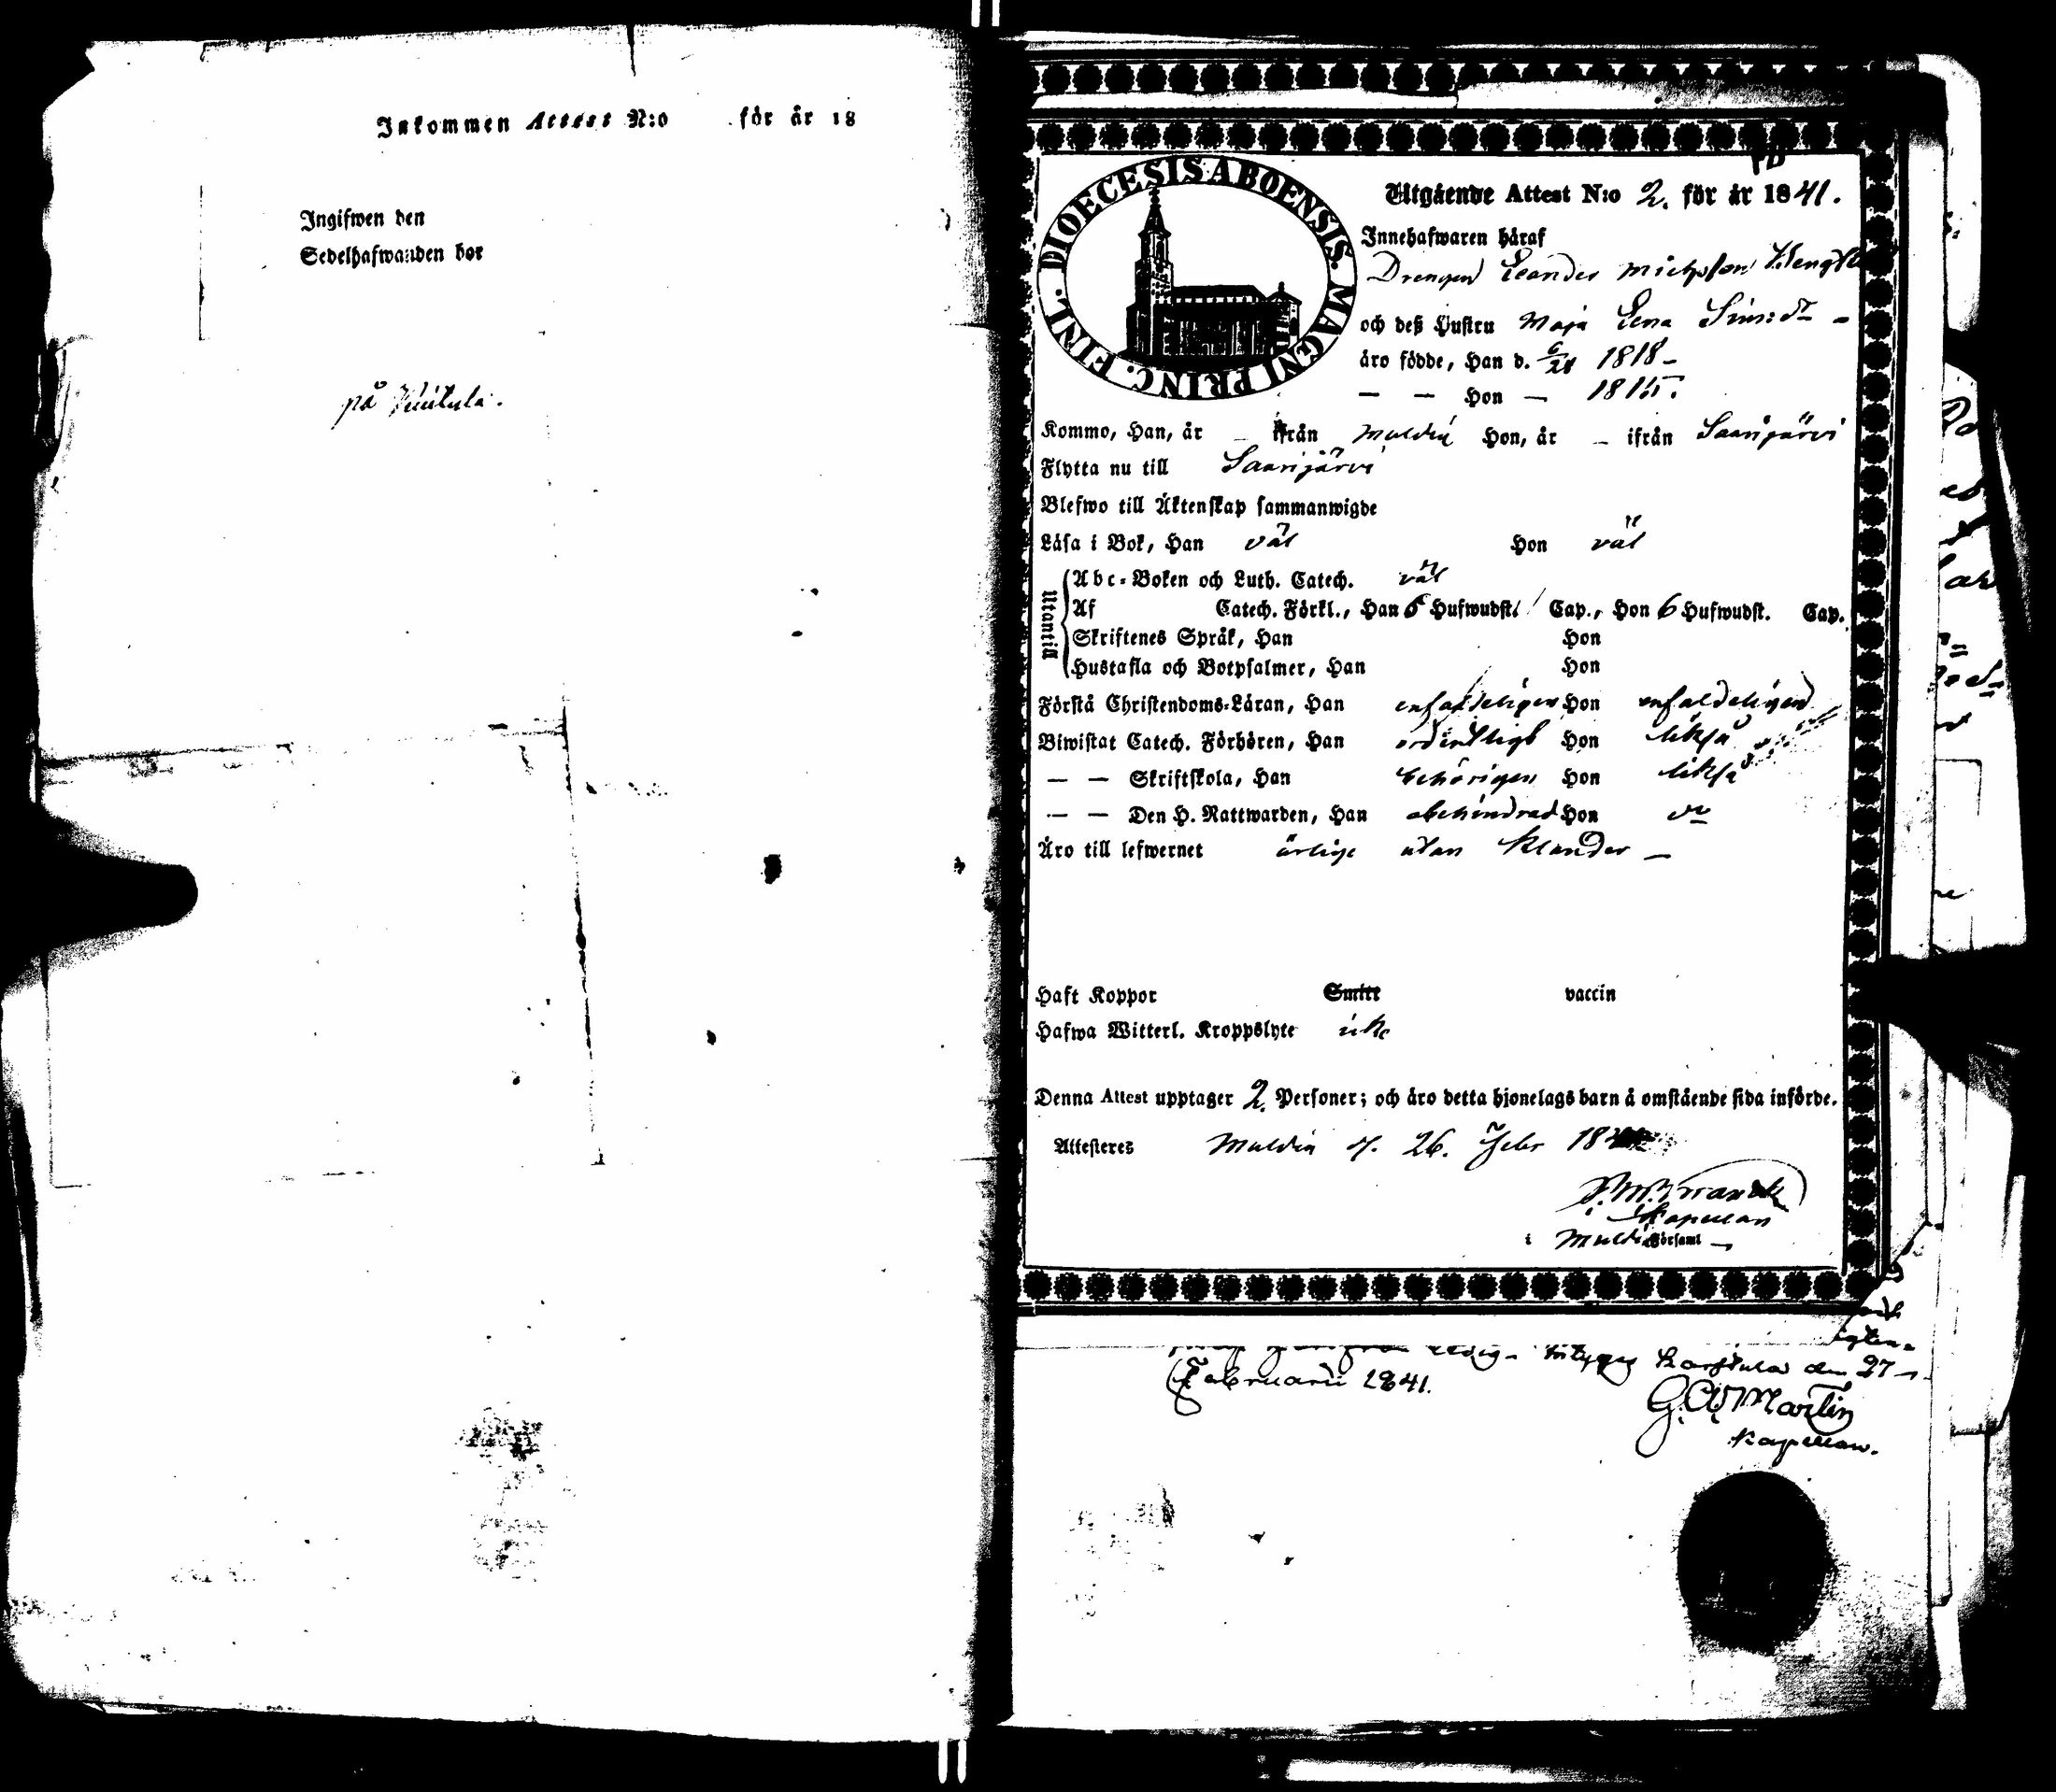 Inkommen Attest N:o för år 18
Ingifwen den
Sedelhafwanden bor
på
DIOECESIS ABOENSIS. MAGNI PRINC. FINL.
Utgående Attest N:o 2. för år 1841.
Innehafwaren häraf
Drengen Leander Michelson
och deß Hustru Maja Lena Sim:dr
äro födde, Han d. 6/28 1818
— — Hon — 1815.
Kommo, Han, år — ifrån Muldia Hon, år — ifrån Saarijärvi
Flytta nu till Saarijärvi
Blefwo till Äktenskap sammanwigde
Läsa i Bok, Han väl Hon väl
Utantill
Abc-Boken och Luth. Catech. väl
Af Catech. Förkl., Han 6 Hufwudst. Cap., Hon 6 Hufwudst. Cap.
Skriftenes Språk, Han Hon
Hustafla och Botpsalmer, Han Hon
Förstå Christendoms-Läran, Han enfaldeligen Hon enfaldeligen
Biwistat Catech. Förhören, Han ordentligt Hon likså
— — Skriftskola, Han behörigen Hon likså
— — Den H. Nattwarden, Han obehindrad Hon do
Äro till lefwernet ärlige utan klander —
Haft Koppor Smitt vaccin
Hafwa Witterl. Kroppslyte icke
Denna Attest upptager 2. Personer; och äro detta hjonelags barn å omstående sida införde.
Attesteres Muldia d. 26. Febr 184
Kapellan
i Muldia Församl —
ledig Karstula den 27
Februarii 1841.
G. A. Martin
Kapellan.